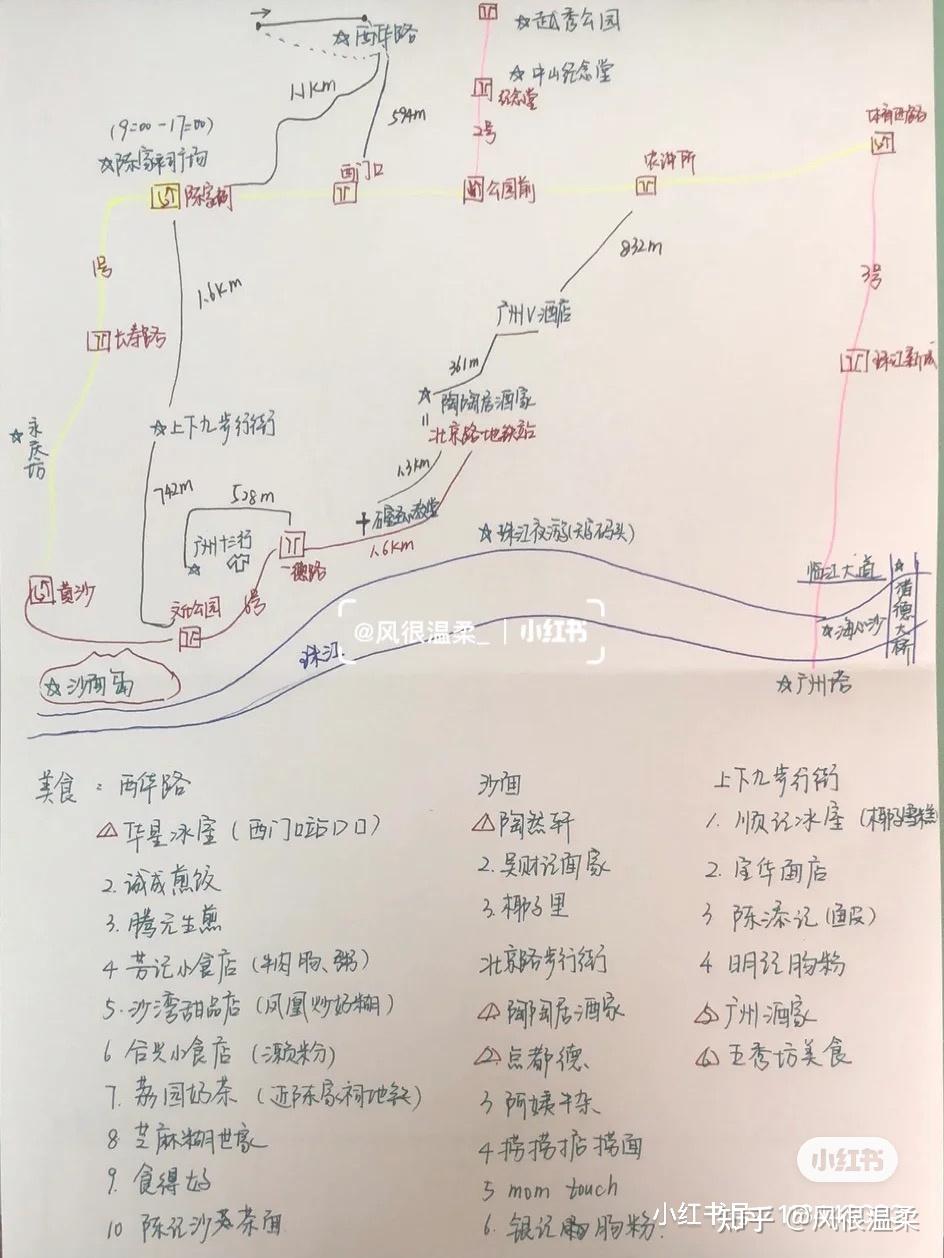 ☆西华路
☆越秀公园
☆中山纪念堂
1.1km
纪念堂
594m
2号
体育西路
(9:00-17:00)
☆陈家祠广场
陈家祠
西门口
公园前
农讲所
1号
1.6km
832m
3号
长寿路
广州V酒店
珠江新城
361m
☆陶陶居酒家
=
北京路地铁站
☆永庆坊
☆上下九步行街
1.3km
742m
528m
石室圣心教堂
☆珠江夜游(大沙头码头)
广州十三行
☆
一德路
1.6km
临江大道
☆猎德大桥
黄沙
文化公园
6号
@风很温柔_ | 小红书
☆海心沙
珠江
☆沙面岛
☆广州塔
美食: 西华路
1 华星冰室(西门口站D口)
2.诚成煎饺
3.腾元生煎
4 芳记小食店(牛肉肠、粥)
5.沙湾甜品店(凤凰炒奶糊)
6 合兴小食店(濑粉)
7.荔园奶茶(近陈家祠地铁)
8 芝麻糊世家
9.食得好
10 陈记沙茶面
沙面
1 陶然轩
2.吴财记面家
3.椰子里
北京路步行街
1 陶陶居酒家
2 点都德
3 阿婆牛杂
4 捞捞掂捞面
5 mom touch
6.银记肠粉.
上下九步行街
1.顺记冰室(椰子雪糕)
2.宝华面店
3 陈添记(鱼皮)
4 明记肠粉
5 广州酒家
6 玉秀坊美食
小红书
知乎 @风很温柔